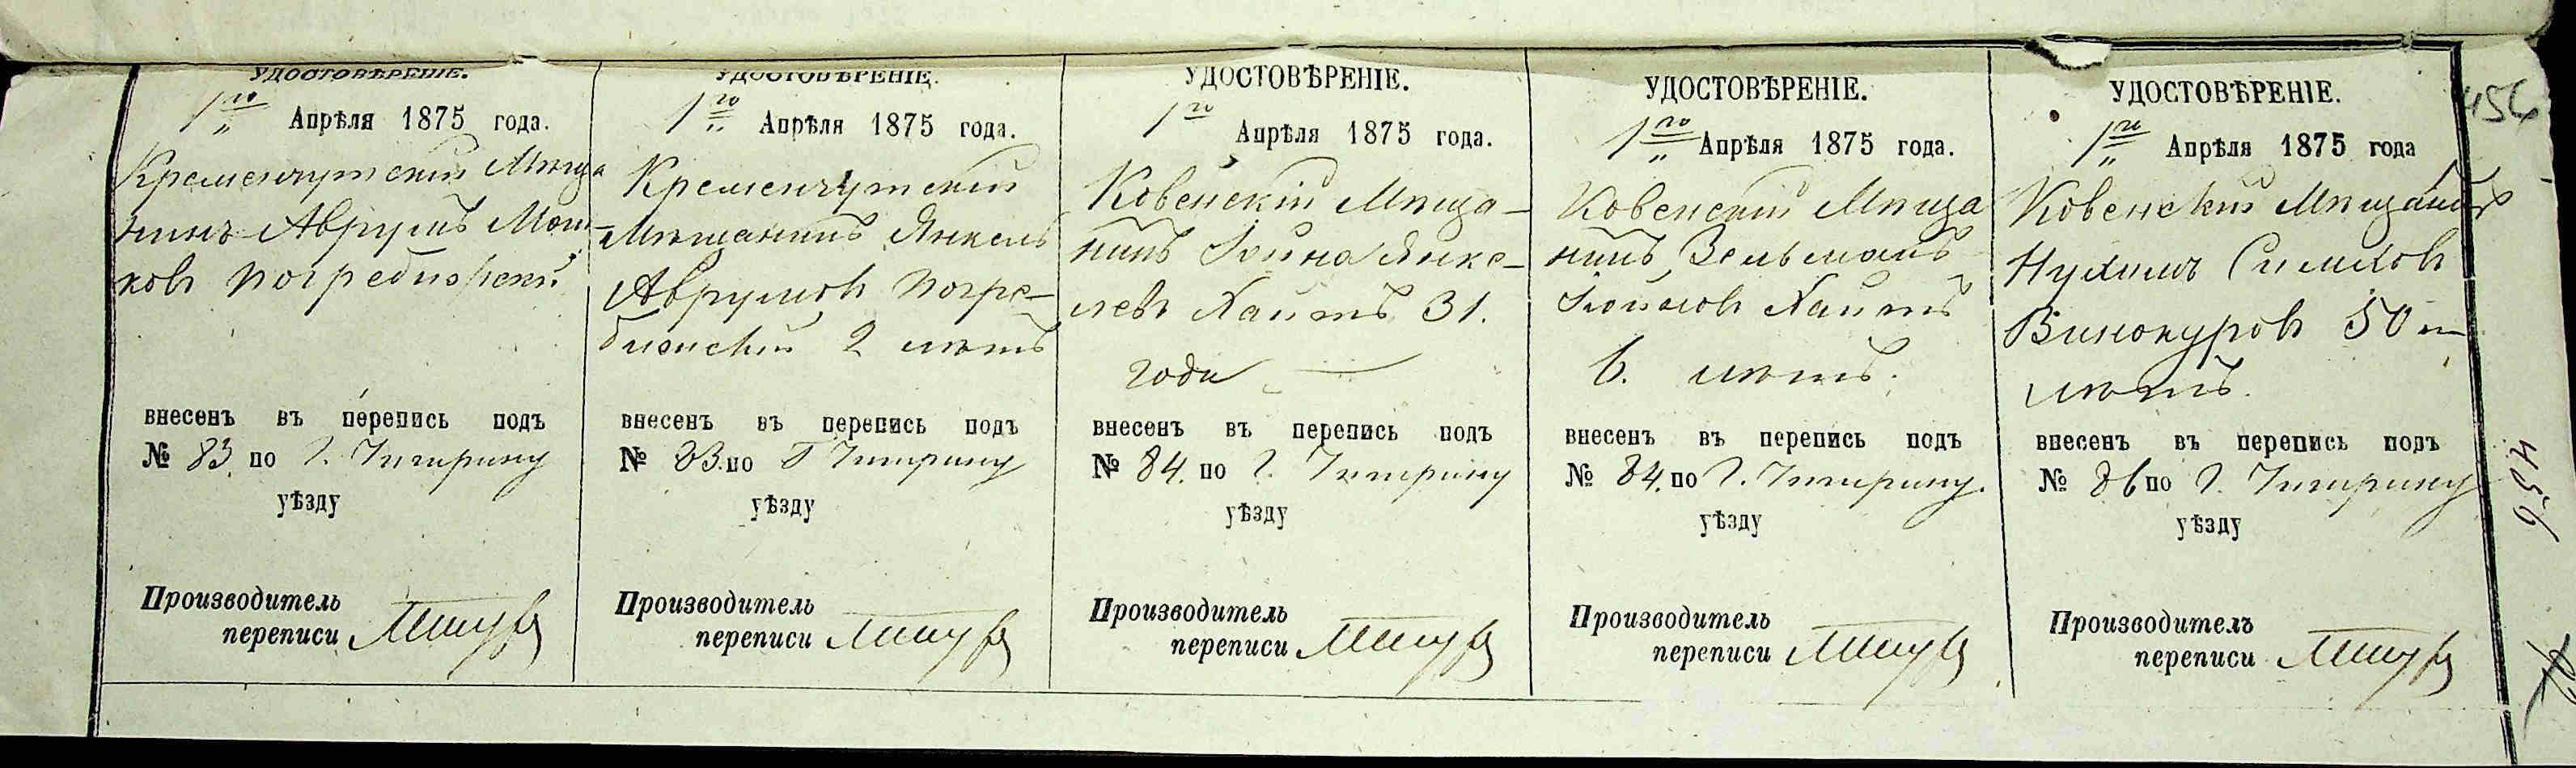 УДОСТОВѢРЕНІЕ.
1го Апрѣля 1875 года.
Кременчугскій Мѣща
нинъ Аврумъ Мош-
ковъ Погребижскій
внесенъ въ перепись подъ
№ 83 по Г. Чигирину
уѣзду
Производитель
переписи
УДОСТОВѢРЕНІЕ.
1го Апрѣля 1875 года.
Кременчугскій
Мѣщанинъ Янкель
Аврумовъ Погре-
бижскій 2 лѣтъ
внесенъ въ перепись подъ
№ 83. по Г Чигирину
уѣзду
Производитель
переписи
УДОСТОВѢРЕНІЕ.
1го Апрѣля 1875 года.
Ковенскій Мѣща-
нинъ Іойна Янке-
левъ Хаитъ 31.
года
внесенъ въ перепись подъ
№ 84. по Г. Чигирину
уѣзду
Производитель
переписи
УДОСТОВѢРЕНІЕ.
1го Апрѣля 1875 года.
Ковенскій Мѣща
нинъ, Зельманъ
Хаитъ
6. лѣтъ.
внесенъ въ перепись подъ
№ 84. по Г. Чигирину.
уѣзду
Производитель
переписи
УДОСТОВѢРЕНІЕ.
1го Апрѣля 1875 года
Ковенскій Мѣщанинъ
Нухимъ Симховъ
Винокуровъ 50ти
лѣтъ.
внесенъ въ перепись подъ
№ 86 по Г. Чигирину
уѣзду
Производитель
переписи
456
456